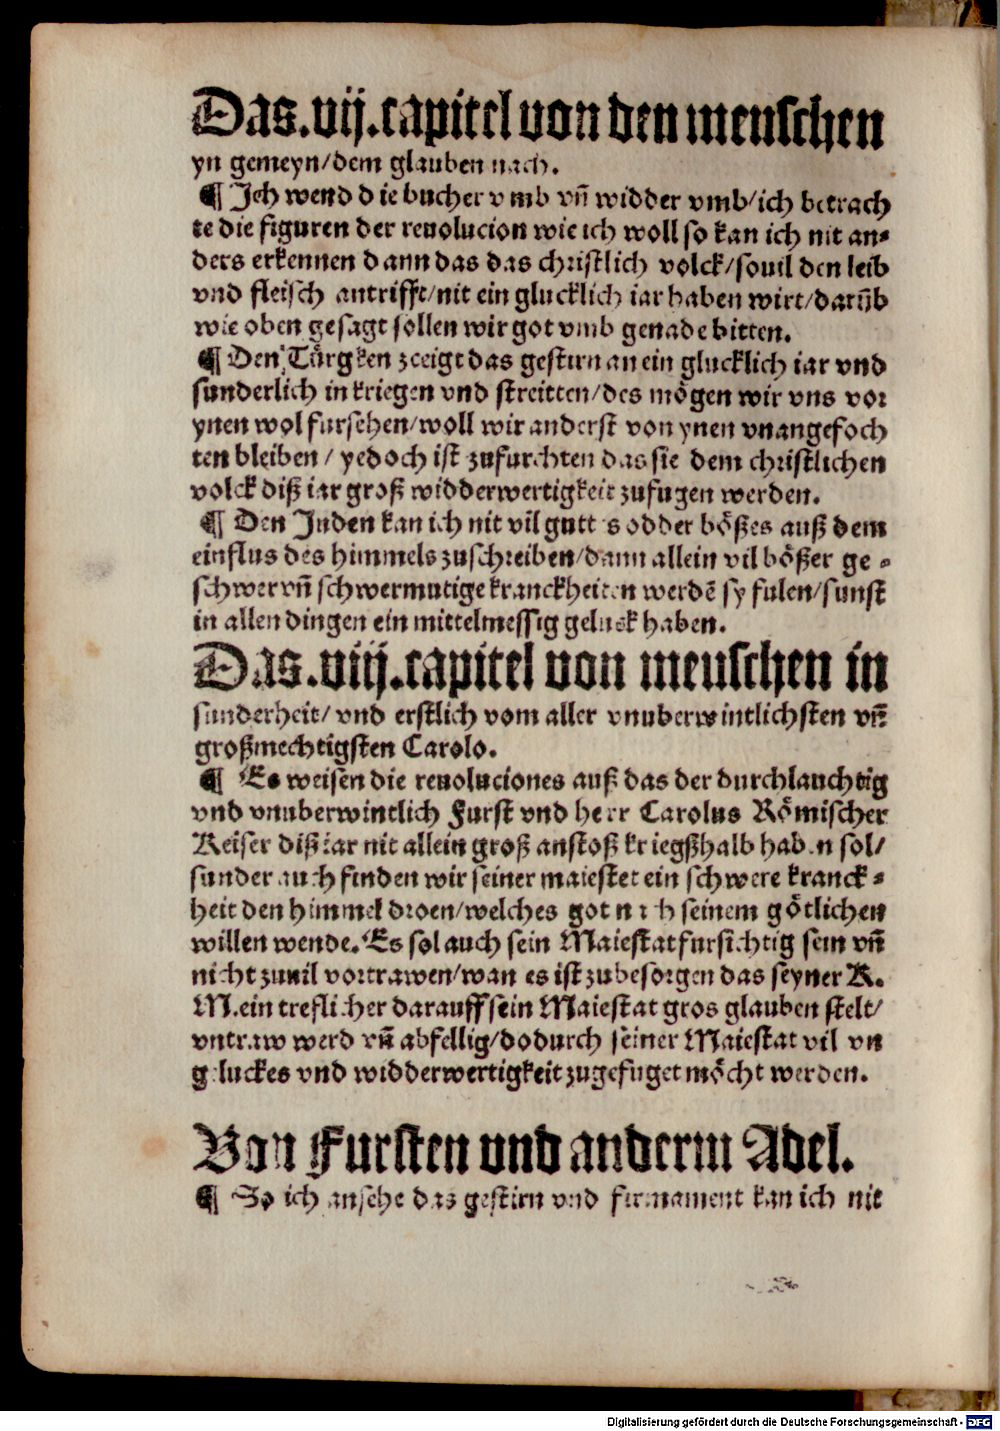 Das.vij.capitel von den menschen
yn gemeyn/dem glauben nach.
¶ Ich wend die bucher vmb vn̄ widder vmb/ich betrach
te die figuren der reuolucion wie ich woll so kan ich nit an⸗
ders erkennen dann das das christlich volck/souil den leib
vnd fleisch antrifft/nit ein glucklich iar haben wirt/darūb
wie oben gesagt sollen wir got vmb genade bitten.
¶ Den Türgken zceigt das gestirn an ein glucklich iar vnd
sunderlich in kriegen vnd streitten/des mögen wir vns vor
ynen wol fursehen/woll wir anderst von ynen vnangefoch
ten bleiben/ yedoch ist zufurchten das sie dem christlichen
volck diß iar groß widderwertigkeit zufugen werden.
¶ Den Juden kan ich nit vil gutts odder bößes auß dem
einflus des himmels zuschreiben/dann allein vil bößer ge⸗
schwer vn̄ schwermutige kranckheiten werdē sy fulen/sunst
in allen dingen ein mittelmessig geluck haben.
Das.viij.capitel von menschen in
sunderheit/ vnd erstlich vom aller vnuberwintlichsten vn̄
großmechtigsten Carolo.
¶ Es weisen die reuoluciones auß das der durchlauchtig
vnd vnuberwintlich Furst vnd herr Carolus Römischer
Keiser diß iar nit allein groß anstoß kriegßhalb haben sol/
sunder auch finden wir seiner maiestet ein schwere kranck⸗
heit den himmel droen/welches got nach seinem götlichen
willen wende. Es sol auch sein Maiestat fursichtig sein vn̄
nicht zuuil vortrawen/wan es ist zubesorgen das seyner K.
M.ein treflicher darauff sein Maiestat gros glauben stelt/
vntraw werd vn̄ abfellig/dodurch seiner Maiestat vil vn
geluckes vnd widderwertigkeit zugefuget möcht werden.
Von Fursten vnd anderm Adel.
¶ So ich ansehe das gestirn vnd firmament kan ich nit
Digitalisierung gefördert durch die Deutsche Forschungsgemeinschaft - DFG